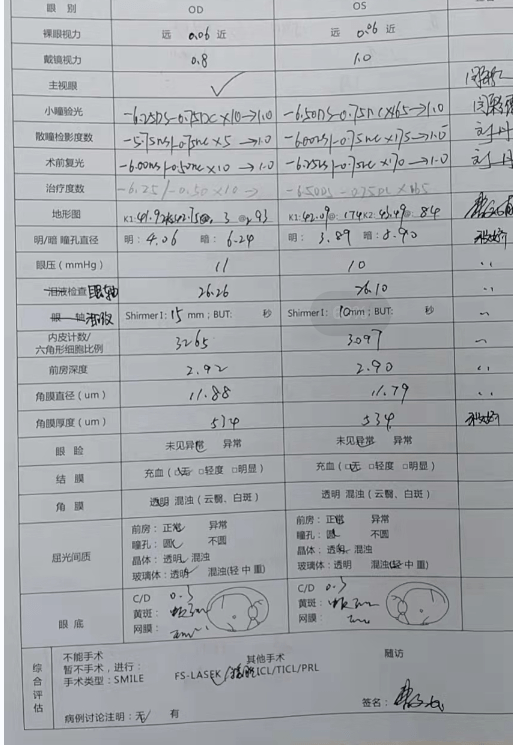 眼 别 OD OS
裸眼视力 远 0.06 近 远 0.06 近
戴镜视力 0.8 1.0
主视眼 ✓
小瞳验光 -6.25DS-0.75DC×10→1.0 -6.50DS-0.75DC×165→1.0
散瞳检影度数 -5.75DS/-0.75DC×5→1.0 -6.00DS/-0.75DC×175→1.0
术前复光 -6.00DS/-0.50DC×10→1.0 -6.25DS/-0.75DC×170→1.0
治疗度数 -6.25/-0.50×10→ -6.50DS-0.75DC×165
地形图 K1:41.92@ K2:42.75@ 3 @ 93 K1:42.09@ 174 K2:43.49@ 84
明/暗 瞳孔直径 明:4.06 暗:6.24 明:3.89 暗:5.90
眼压(mmHg) 11 10
泪液检查 眼轴 26.26 26.10
眼 轴 泪液 ShirmerⅠ:15 mm;BUT: 秒 ShirmerⅠ:10mm;BUT: 秒
内皮计数/
六角形细胞比例 3265 3097
前房深度 2.92 2.90
角膜直径(um) 11.88 11.79
角膜厚度(um) 534 534
眼 睑 未见异常 异常 未见异常 异常
结 膜 充血(□无 □轻度 □明显) 充血(□无 □轻度 □明显)
角 膜 透明 混浊(云翳、白斑) 透明 混浊(云翳、白斑)
屈光间质
前房:正常 异常 前房:正常 异常
瞳孔:圆 不圆 瞳孔:圆 不圆
晶体:透明 混浊 晶体:透明 混浊
玻璃体:透明 混浊(轻 中 重) 玻璃体:透明 混浊(轻 中 重)
眼 底
C/D 0.3 C/D 0.3
黄斑: 黄斑:
网膜: 网膜:
综合评估
不能手术 其他手术 随访
暂不手术,进行:
手术类型:SMILE FS-LASEK ✓ ICL/TICL/PRL
签名:
病例讨论注明:无 ✓ 有